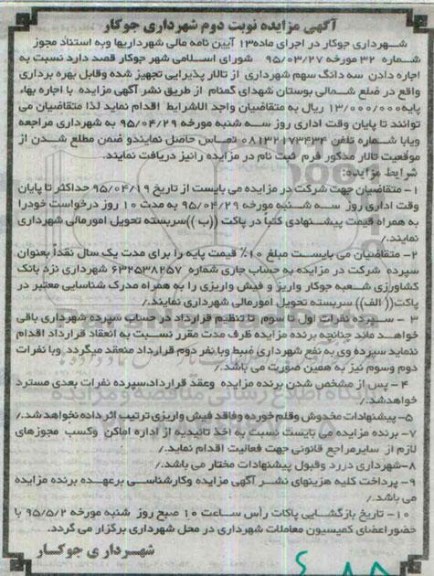 آگهی مزایده نوبت دوم شهرداری جوکار
شهرداری جوکار در اجرای ماده۱۳ آیین نامه مالی شهرداریها وبه استناد مجوز
شماره ۳۲ مورخه ۹۵/۰۳/۲۷ شورای اسلامی شهر جوکار قصد دارد نسبت به
اجاره دادن سه دانگ سهم شهرداری از تالار پذیرایی تجهیز شده وقابل بهره برداری
واقع در ضلع شمالی بوستان شهدای گمنام از طریق نشر آگهی مزایده با اجاره بهاء
پایه ۱۳/۰۰۰/۰۰۰ ریال به متقاضیان واجد الاشرایط اقدام نماید لذا متقاضیان می
توانند تا پایان وقت اداری روز سه شنبه مورخه ۹۵/۰۴/۲۹ به شهرداری مراجعه
ویابا شماره تلفن ۰۸۱۳۲۱۷۳۴۳۴ تماس حاصل نمایندو ضمن مطلع شدن از
موقعیت تالار مذکور فرم ثبت نام در مزایده رانیز دریافت نمایند.
شرایط مزایده:
۱- متقاضیان جهت شرکت در مزایده می بایست از تاریخ ۹۵/۰۴/۱۹ حداکثر تا پایان
وقت اداری روز سه شنبه مورخه ۹۵/۰۴/۲۹ به مدت ۱۰ روز درخواست خودرا
به همراه قیمت پیشنهادی کتباً در پاکت ((ب ))سربسته تحویل امورمالی شهرداری
نمایند./
۲- متقاضیان می بایست مبلغ ۱۰٪ قیمت پایه را برای مدت یک سال نقداً بعنوان
سپرده شرکت در مزایده به حساب جاری شماره ۶۳۲۵۳۸۲۵۷ شهرداری نزد بانک
کشاورزی شعبه جوکار واریز و فیش واریزی را به همراه مدرک شناسایی معتبر در
پاکت(( الف)) سربسته تحویل امورمالی شهرداری نمایند./
۳ - سپرده نفرات اول تا سوم تا تنظیم قرارداد در حساب سپرده شهرداری باقی
خواهد ماند چنانچه برنده مزایده ظرف مدت مقرر نسبت به انعقاد قرارداد اقدام
ننماید سپرده وی به نفع شهرداری ضبط وبا نفر دوم قرارداد منعقد میگردد وبا نفرات
دوم وسوم نیز به همین صورت می باشد./
۴ - پس از مشخص شدن برنده مزایده وعقد قرارداد،سپرده نفرات بعدی مسترد
خواهدشد./
۵- پیشنهادات مخدوش وقلم خورده وفاقد فیش واریزی ترتیب اثر داده نخواهد شد./
۷- برنده مزایده می بایست نسبت به اخذ تائیدیه از اداره اماکن وکسب مجوزهای
لازم از سایر مراجع قانونی جهت فعالیت اقدام نماید./
۸-شهرداری در رد وقبول پیشنهادات مختار می باشد./
۹- پرداخت کلیه هزینهای نشر آگهی مزایده وکارشناسی برعهده برنده مزایده
می باشد./
۱۰- تاریخ بازگشایی پاکات رأس ساعت ۱۰ صبح روز شنبه مورخه ۹۵/۵/۲ با
حضور اعضای کمیسیون معاملات شهرداری در محل شهرداری برگزار می گردد.
شهرداری جوکار